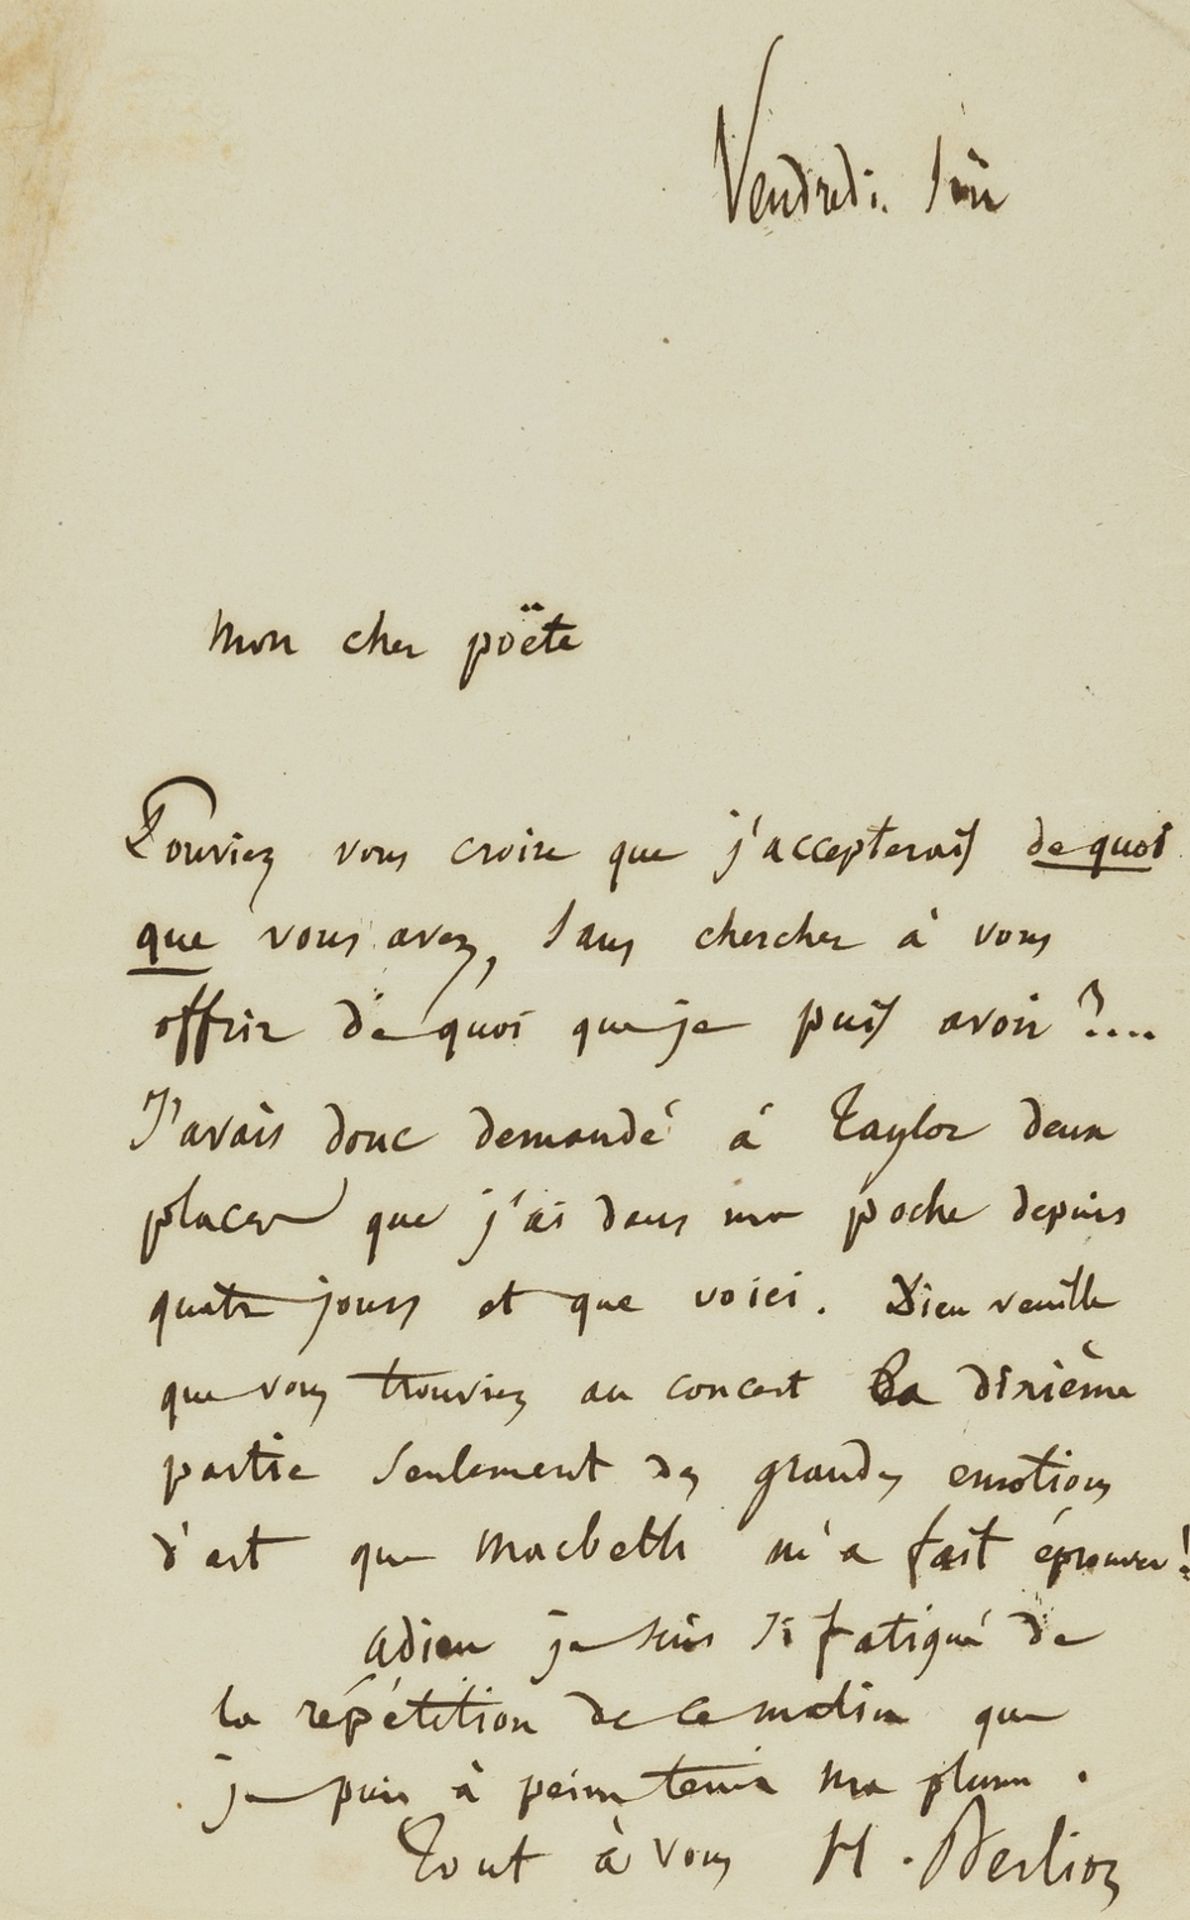 Vendredi soir
Mon cher poëte
Pouviez vous croire que j'accepterais de quoi
que vous avez, sans chercher à vous
offrir de quoi que je puis avoir ?....
J'avais donc demandé à Taylor deux
places que j'ai dans ma poche depuis
quatre jours et que voici. Dieu veuille
que vous trouviez au concert la dixième
partie seulement des grandes emotions
d'art que Macbeth m'a fait éprouver!
adieu je suis si fatigué de
la répétition de ce matin que
je puis à peine tenir ma plume.
Tout à vous H. Berlioz